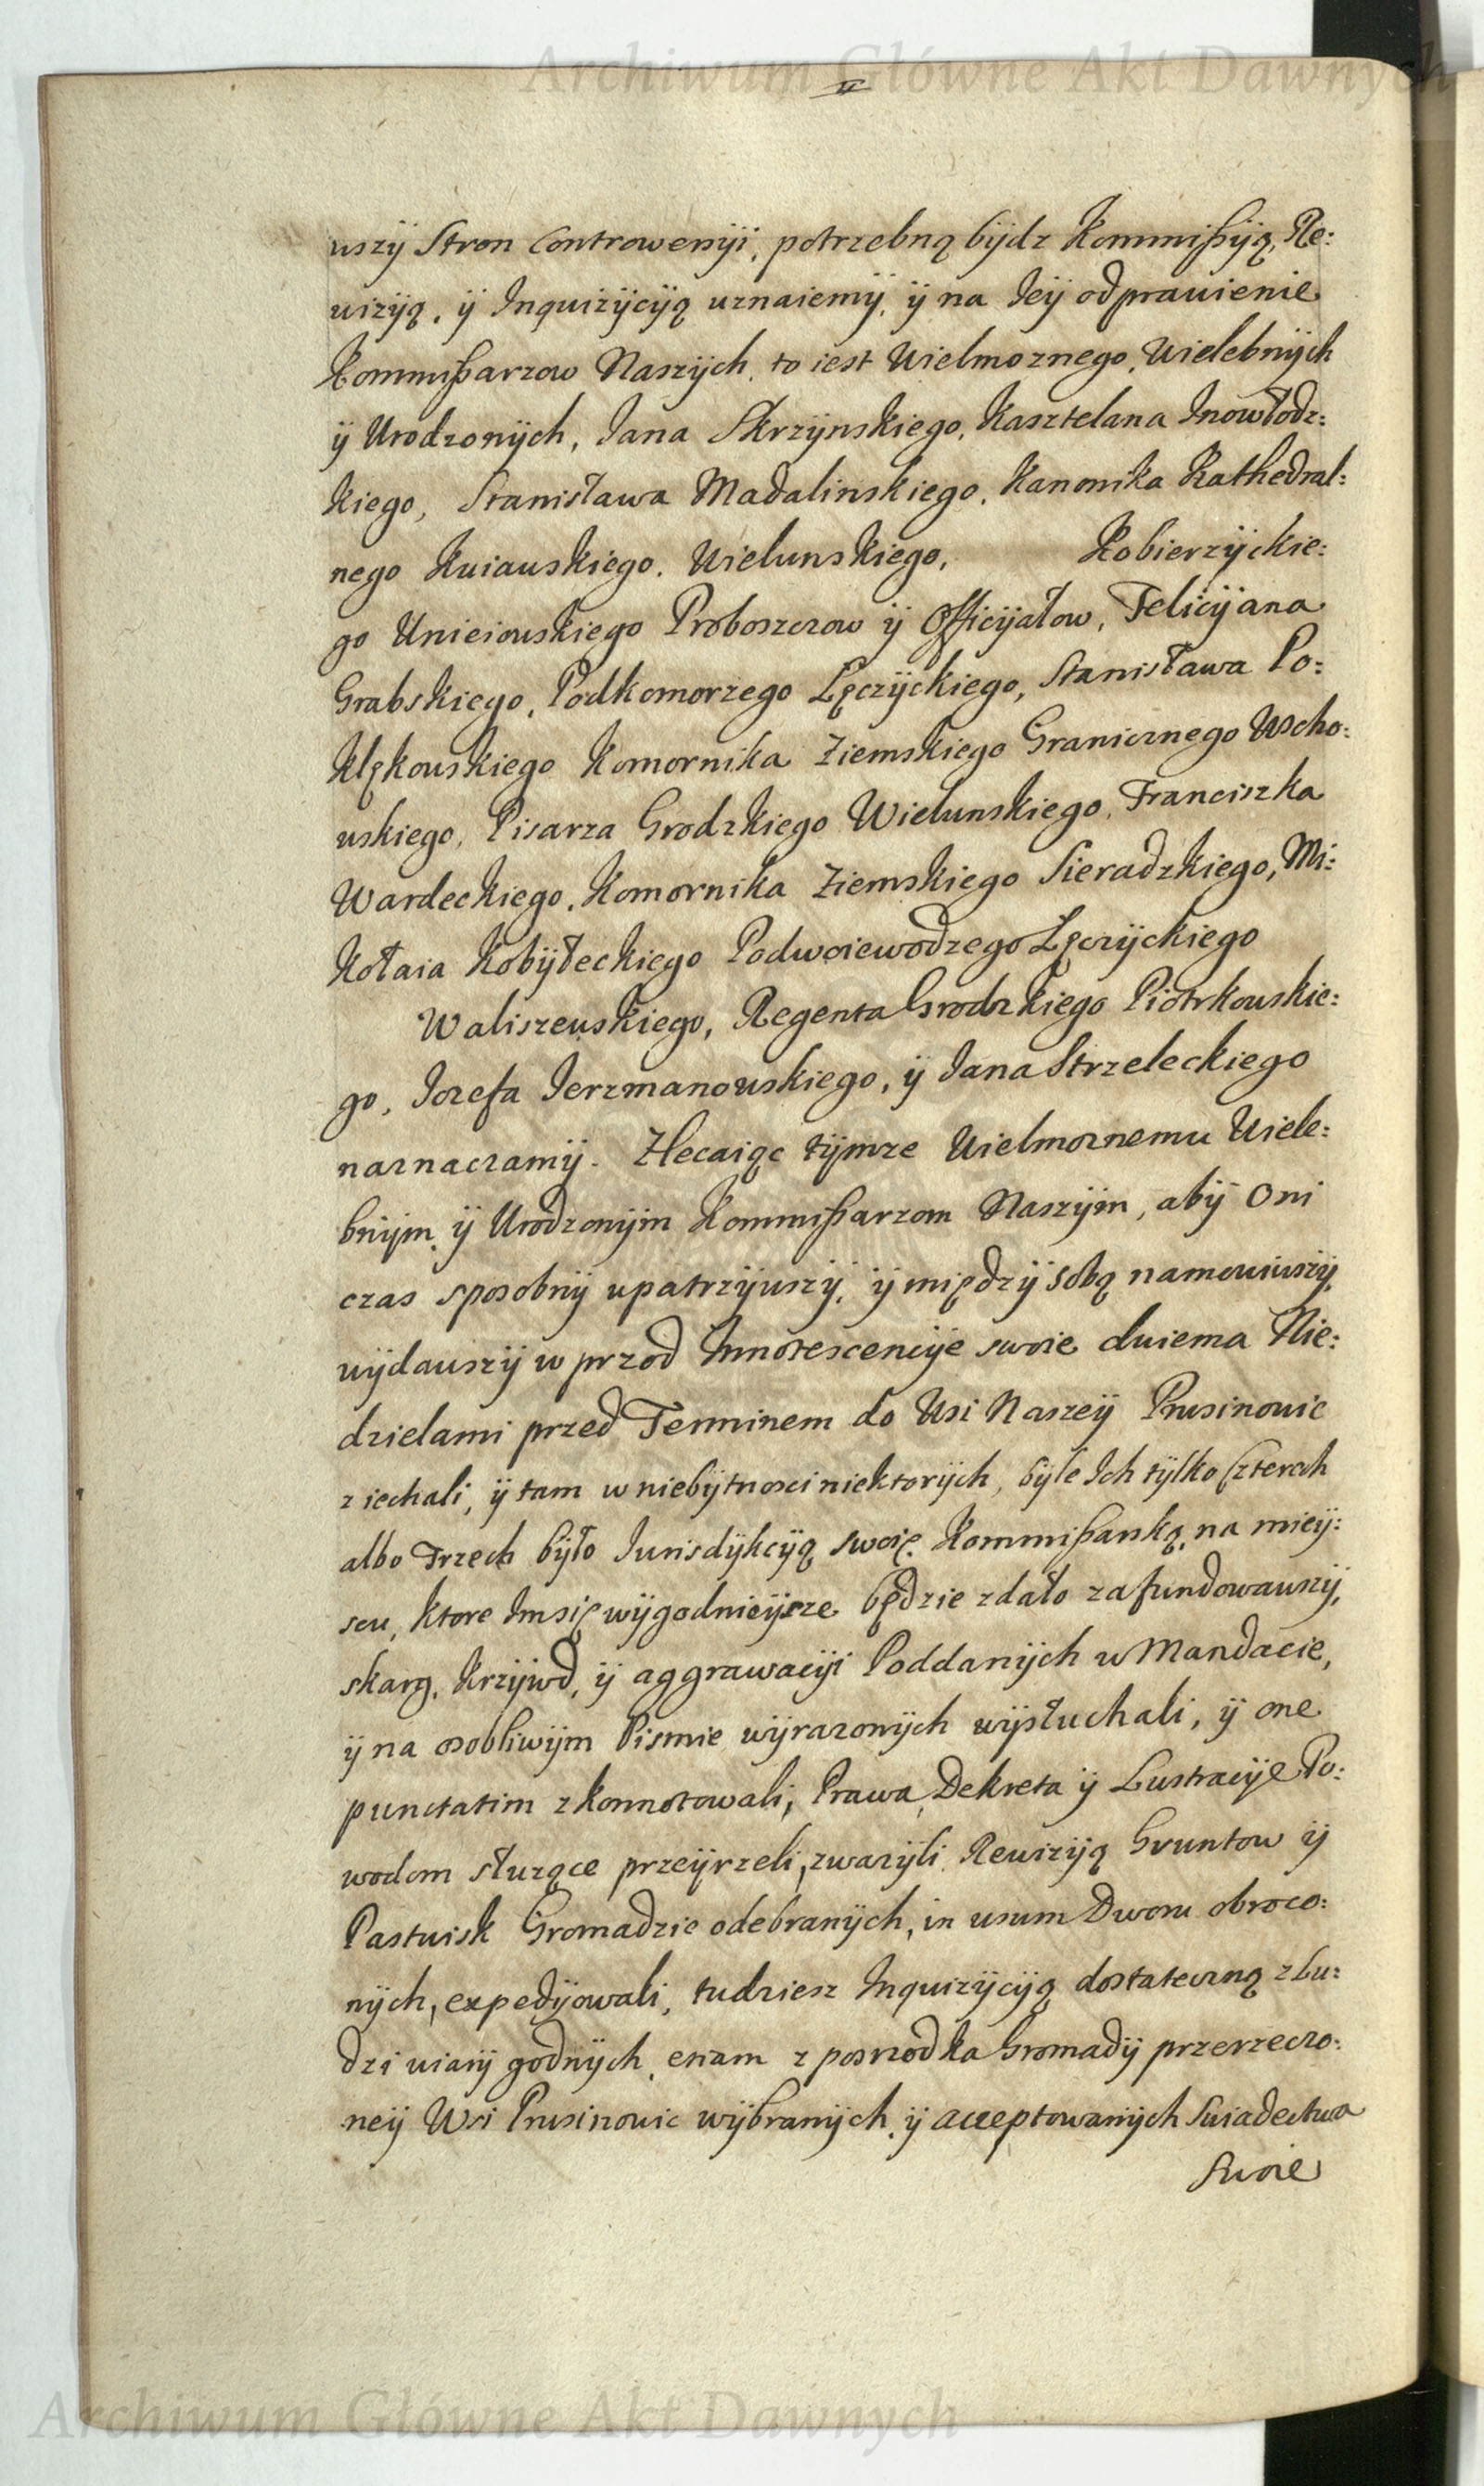 Archiwum Główne Akt Dawnych
uszÿ Stron Controwersÿi, potrzebną bÿdz Kommißÿą, Re:
uizÿą, ÿ Inquizÿcÿą uznaiemÿ, ÿ na Ieÿ odprauienie
Kommißarzow Naszÿch, to iest Uielmoznego, Uielebnÿch
ÿ Urodzonÿch, Iana Skrzÿnskiego, Kasztelana Inowłodz:
kiego, Stanisława Madalinskiego, Kanonika Kathedral:
nego Kuiauskiego, Uielunskiego, Kobierzÿckie:
go Unieiouskiego Proboszczow ÿ Officÿałow, Felicÿana
Grabskiego, Podkomorzego Łęczÿckiego, Stanisława Po:
klękouskiego Komornika Ziemskiego Granicznego Wscho:
uskiego, Pisarza Grodzkiego Wielunskiego, Franciszka
Wardeckiego, Komornika Ziemskiego Sieradzkiego, Mi:
kołaia Kobÿłeckiego Podwoiewodzego Łęczÿckiego
Waliszeuskiego, Regenta Grodzkiego Piotrkouskie:
go, Iozefa Ierzmanouskiego, ÿ Iana Strzeleckiego
naznaczamÿ. Zlecaiąc tÿmze Uielmoznemu Uiele:
bnÿm, ÿ Urodzonÿm Kommißarzom Naszÿm, abÿ Oni
czas sposobnÿ upatrzÿuszÿ, ÿ międzÿ sobą namouiuszÿ,
uÿdauszÿ w przod Innotescencÿe swoie dwiema Nie:
dzielami przed Terminem do Usi Naszeÿ Prusinouic
ziechali, ÿ tam w niebÿtnosci niektorÿch, bÿle Ich tÿlko Czterech
albo Trzech bÿło Iurisdÿkcÿą swoię Kommißarską, na mieÿ:
scu, ktore Im się wÿgodnieÿsze będzie zdało zafundowauszÿ,
skarg, Krzÿwd, ÿ aggrawacÿi Poddanÿch w Mandacie,
ÿ na osobliwÿm Pismie wÿrazonÿch wÿsłuchali, ÿ one
punctatim zkonnotowali, Prawa, Dekreta ÿ Lustracÿe Po:
wodom służące przeÿrzeli, zwazÿli, Reuizÿą Gruntow ÿ
Pastuisk Gromadzie odebranÿch, in usum Dworu obroco:
nÿch, expedÿowali, tudziesz Inquizÿcÿą dostateczną z Lu:
dzi uiarÿ godnÿch, etiam z posrzodka Gromadÿ przerzeczo:
neÿ Wsi Prusinouic wÿbranÿch, ÿ acceptowanÿch Suiadectwa
Swoie
Archiwum Główne Akt Dawnych